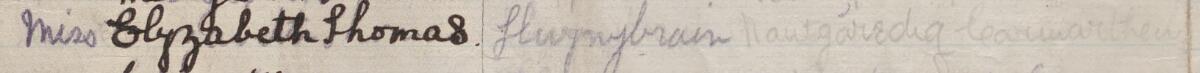 Miss Elyzabeth Thomas. Llwynybrain Nantgaredig Carmarthen